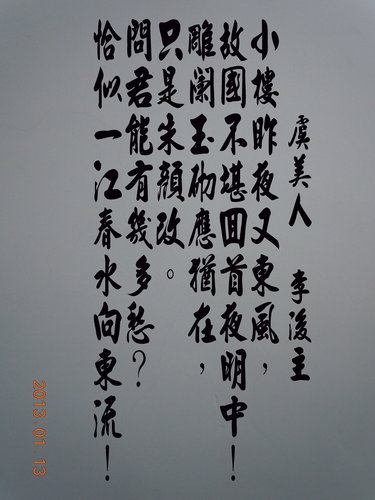 虞美人 李後主
小樓昨夜又東風,
故國不堪回首夜明中!
雕闌玉砌應猶在,
只是朱顏改。
問君能有幾多愁?
恰似一江春水向東流!
2013.01.13